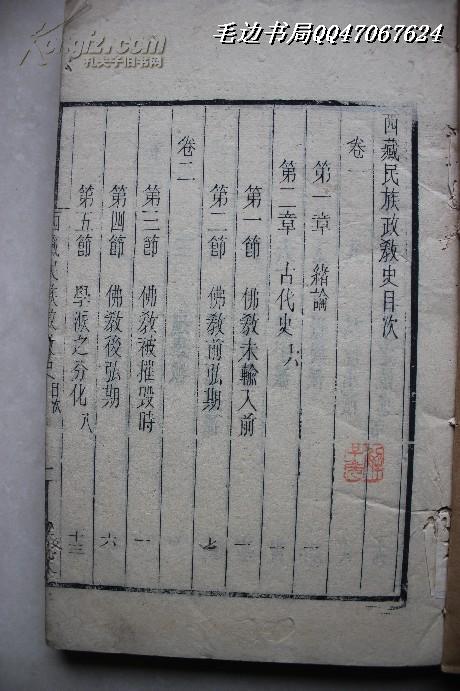 毛边书局QQ47067624
Kongfz.com
孔夫子旧书网
西藏民族政教史目次
卷一
第一章 緒論 一
第二章 古代史 六 一
第一節 佛教未輸入前 一
第二節 佛教前弘期 七
卷二
第三節 佛教被摧毀時 一
第四節 佛教後弘期 六
第五節 學派之芬化 八 十三
西藏民族政教史目次 一